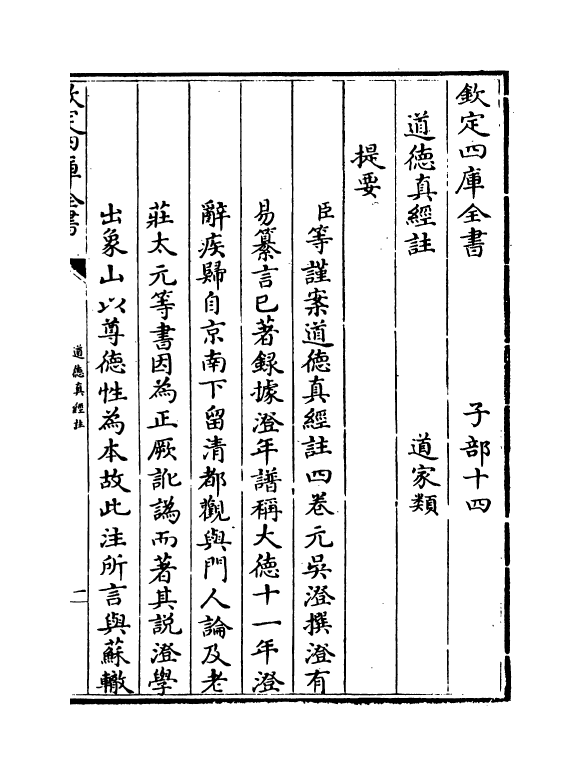 欽定四庫全書 子部十四
道德真經註 道家類
提要
臣等謹案道德真經註四卷元吳澄撰澄有
易纂言已著録據澄年譜稱大德十一年澄
辭疾歸自京南下留清都觀與門人論及老
莊太元等書因為正厥訛譌而著其說澄學
出象山以尊德性為本故此注所言與蘇轍
欽定四庫全書
道德真經註
二